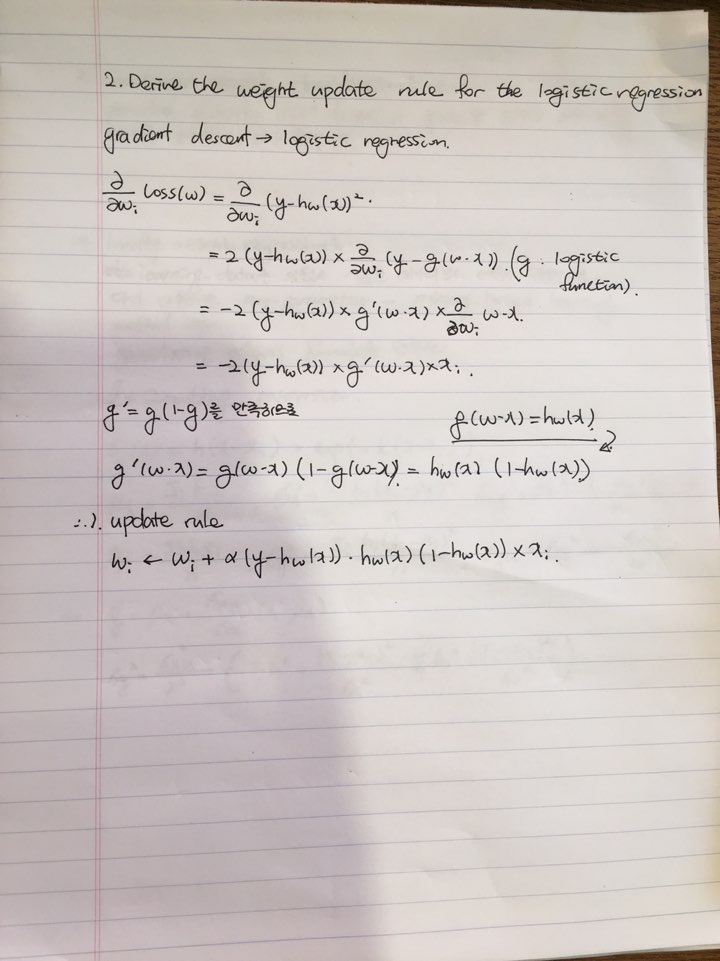 2. Derive the weight update rule for the logistic regression
gradient descent → logistic regression.
∂/∂wᵢ Loss(w) = ∂/∂wᵢ (y-h_w(x))².
= 2 (y-h_w(x)) × ∂/∂wᵢ (y - g(w·x)). (g : logistic function).
= -2 (y-h_w(x)) × g'(w·x) × ∂/∂wᵢ w·x.
= -2(y-h_w(x)) × g'(w·x) × xᵢ.
g' = g(1-g)를 만족하므로
g(w·x) = h_w(x)
g'(w·x) = g(w·x) (1-g(w·x)) = h_w(x) (1-h_w(x))
∴). update rule
wᵢ ← wᵢ + α (y-h_w(x)) · h_w(x) (1-h_w(x)) × xᵢ.